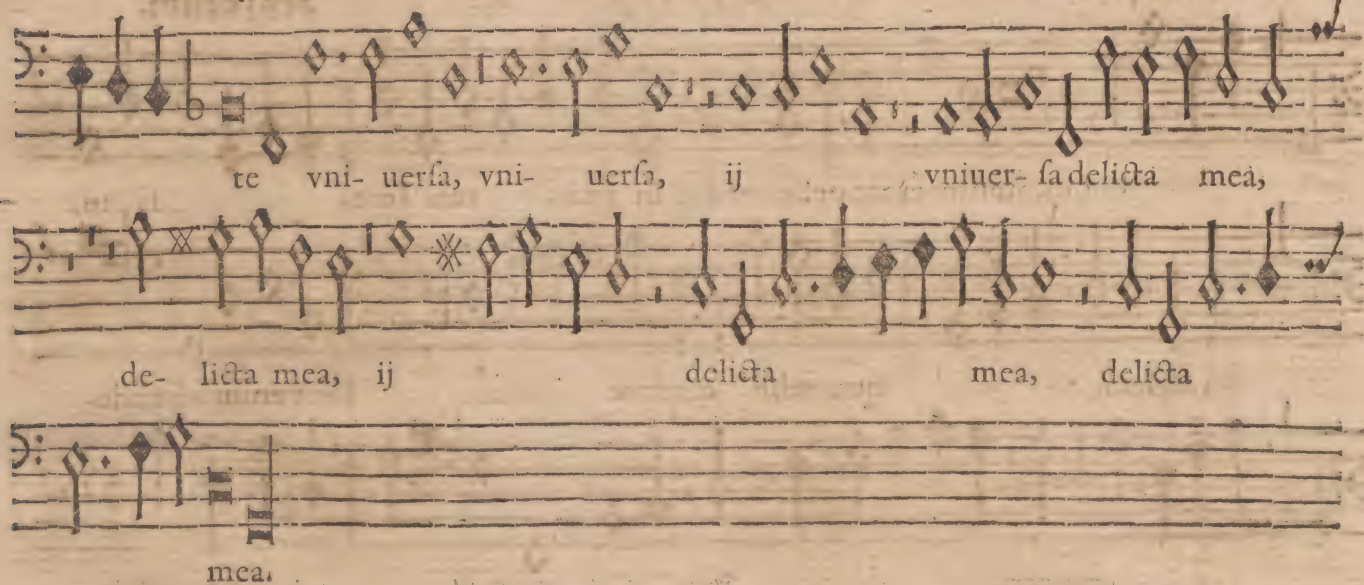 te vni- uerſa, vni- uerſa, ij vniuer- ſa delicta mea,
de- licta mea, ij delicta mea, delicta
mea.